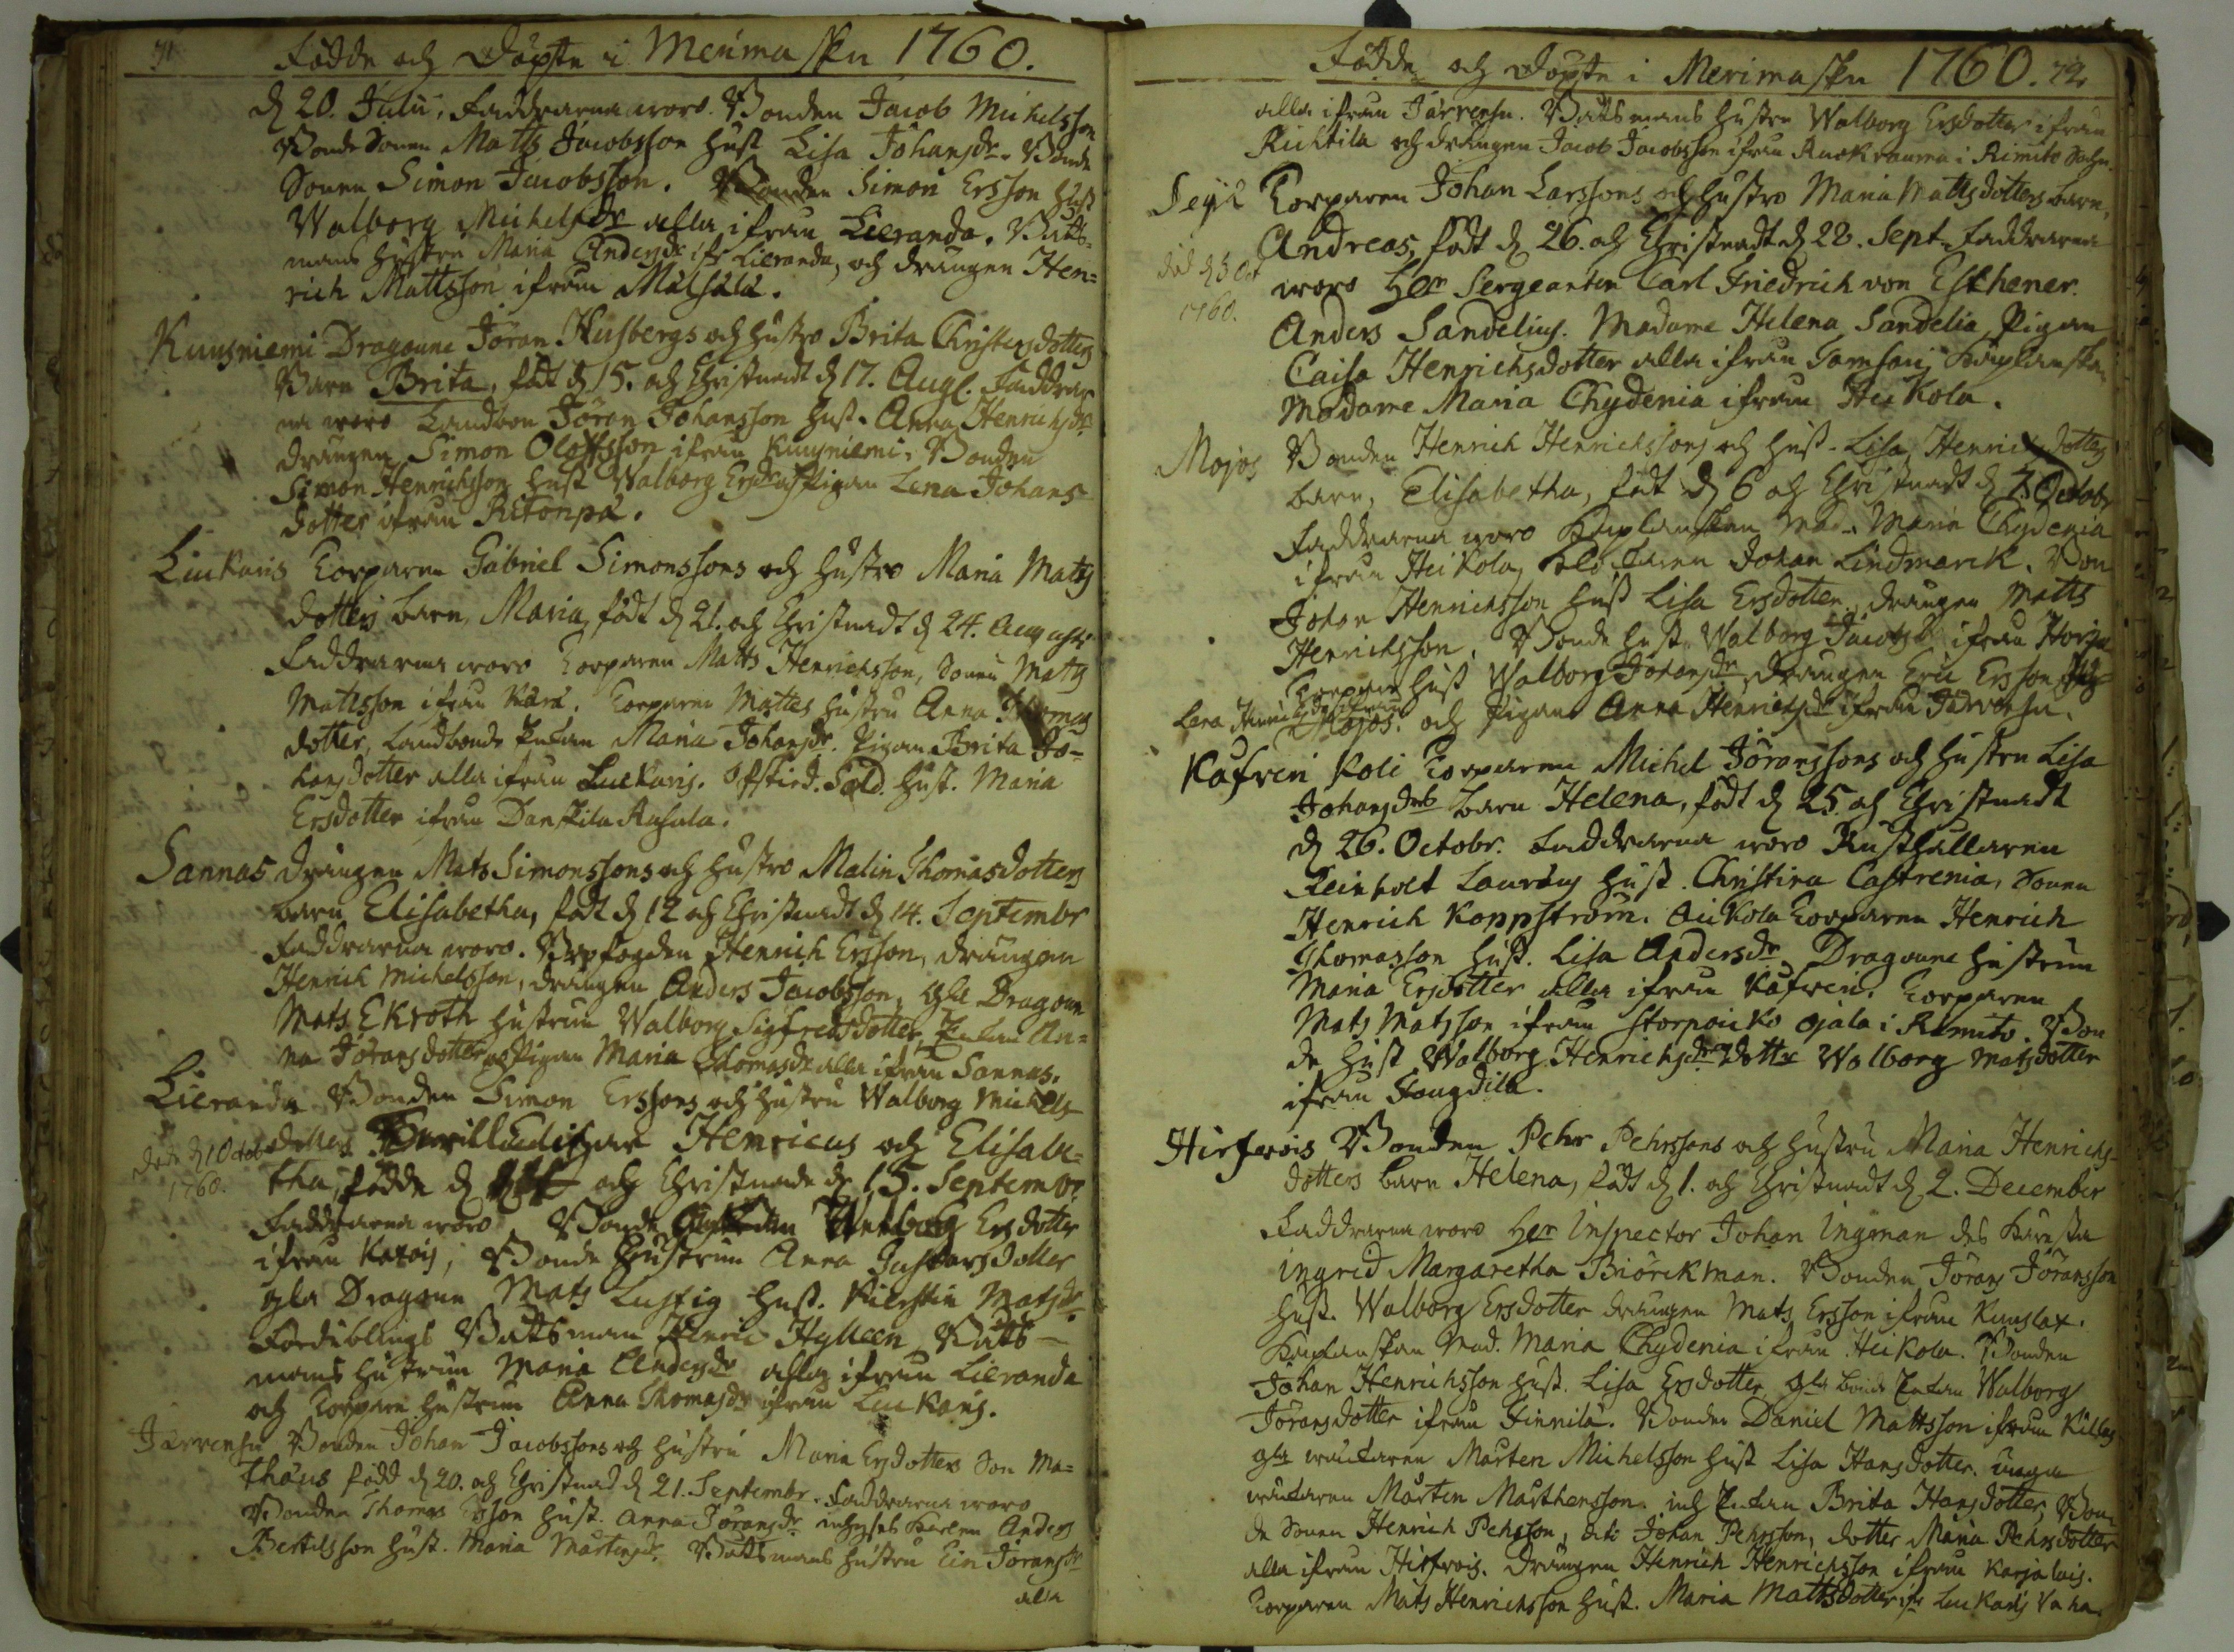 71
Födde och Döpte i Merimasku 1760.
d 20. Julii. Faddrarna woro. Bonden Jacob Michelsson
Bonde Sonen Matts Jacobsson Hust Lisa Johansdr. Bonde
Sonen Simon Jacobsson. Bonden Simon Ersson Hust
Walborg Michelsdr alla ifrån Lieranda. Båts-
mans hustru Maria Andersdr ifr Lieranda, och drängen Hen=
rich Mattsson ifrån
Kuusniemi Dragoune Jöran Husbergs och hustro Brita Christersdotters
Barn Brita, född d 15. och Christnadt d 17. Aug. Faddrar
na woro Landbon Jöran Johansson Hust. Anna Henrichsdr
drängen Simon Oloffsson ifrån Kuusniemi. Bonden
Simon Henrichsson Hust Walborg Ersdr och Pigan Lena Johans-
dotter ifrån Ritonpä.
Luckaris Torparen Gabriel Simonssons och Hustro Maria Mats
dotters barn, Maria, född d 21. och Christnadt d 24. Augusti
Faddrarna woro Torparen Matts Henrichsson, Sonen Mats
Mattsson ifrån Kärä. Torparen Mattes hustru Anna Thomas
dotter, Landbonde Enkan Maria Johansdr. Pigan Brita Jo-
hansdotter alla ifrån Luckaris. Afskied. Sold. Hust. Maria
Ersdotter ifrån Danskila
Sannas Drängen Mats Simonssons och Hustro Malin Thomasdotters
barn Elisabetha, född d 12 och Christnadt d 14. Septembr
Faddrarna woro. Henrich Ersson, drängen
Henrich Michelsson, drängen Anders Jacobsson, gla Dragoun
Mats Ekroth hustrun Walborg Sigfredsdotter, Enkan An=
na Jöransdotter och Pigan Maria Thomasdr alla ifrån Sannas.
Lieranda Bonden Simon Erssons och hustru Walborg Michels
död d 1 Octob dotters Henricus och Elisabe=
1760. tha, födde d och Christnade d 15. Septembr.
Faddrarna woro Bonde Walborg Ersdotter
ifrån Katois, Bonde Hustrun Anna Gustavsdotter
gla Dragoun Mats Lustig Hust. Kierstin Matsdr.
Fördublings Båtsman Henric Hylleen Båts-
mans Hustrun Maria Andersdr alla ifrån Lieranda
och Torpare hustrun Anna Thomasdr ifrån Luckaris.
Järvensu Bonden Johan Jacobssons och hustru Maria Ersdotters Son Ma=
thäus född d 20. och Christnad d 21. Septembr. Faddrarna woro
Bonden Thomas Hust. Anna Jöransdr inhyses Karlen Anders
Bertilsson Hust. Maria Mårtensdr. Båtsmans hustru Jöransdr
alla
Födde och döpte i Merimasku 1760. 72
alla ifrån Järvensu. Båtsmans hustru Walborg Ersdotter ifrån
Richtila och drängen Jacob Jacobsson ifrån i Rimito Sochn.
Torparen Johan Larssons och hustro Maria Mattsdotters barn,
Andreas, född d 26. och Christnadt d 28. Sept. Faddrarna
död d 5 Oct
1760. woro Herr Sergeanten Carl Friedrich von Esthener.
Anders Sandelius. Madame Helena Sandelia Pigan
Caisa Henrichsdotter alla ifrån Kaplanskan
Madame Maria Chydenia ifrån Heikola.
Mojos Bonden Henrich Henrichssons och Hust. Lisa Henrichsdotters
barn, Elisabetha, född d 6 och Christnadt d 7 Octobr
Faddrarna woro Kaplanskan Mad. Maria Chydenia
ifrån Heikola, Klockaren Johan Lindmarck. Bon
Johan Henrichsson Hust Lisa Ersdotter. drängen Matts
Henrichsson. Bonde Hust. Walborg Jacobsdr ifrån
Torpare Hust Walborg Johansdr, drängen Eric Ersson
Lena Henrichsdr ifrån Mojos. och Pigan Anna Henrichsdr ifrån Järvensu.
Kåfreri Koli Torparen Michel Jöranssons och hustru Lisa
Johansdrs barn Helena, född d 25. och Christnadt
d 26. Octobr. Faddrarna woro Rusthållaren
Reinholt Hust. Christina Castrenia, Sonen
Henrich Koppström. Torparen Henrich
Thomasson Hust. Lisa Andersdr, Dragoune hustrun
Maria Ersdotter alla ifrån Kåfreri. Torparen
Mats Matsson ifrån Ojala i Rimito. Bon
de Hust Walborg Henrichsdr och Dotter Walborg Matsdotter
ifrån
Hirfwois Bonden Pehr Pehrssons och hustru Maria Henrichs-
dotters barn Helena, född d 1. och Christnadt d 2. December
Faddrarna woro Herr Inspector Johan Ingman des
Ingrid Margaretha Biörckman. Bonden Jöran Jöransson
Hust. Walborg Ersdotter drängen Mats Ersson ifrån Kuuslax.
Kaplanskan Mad. Maria Chydenia ifrån Heikola. Bonden
Johan Henrichsson Hust. Lisa Ersdotter, gla bonde Enkan Walborg
Jöransdotter ifrån Finnilä. Bonden Daniel Mattsson ifrån
gla Mårten Michelsson Hust Lisa Hansdotter. unga
Mårten Mårthensson. inh Enkan Brita Hansdotter, Bon
de Sonen Henrich Pehrsson, dito Johan Pehrsson, dotter Maria Pehrsdotter
alla ifrån Hirfwois. Drängen Henrich Henrichsson ifrån Karjalais.
Torparen Mats Henrichsson Hust. Maria Mattsdotter ifr Luckaris